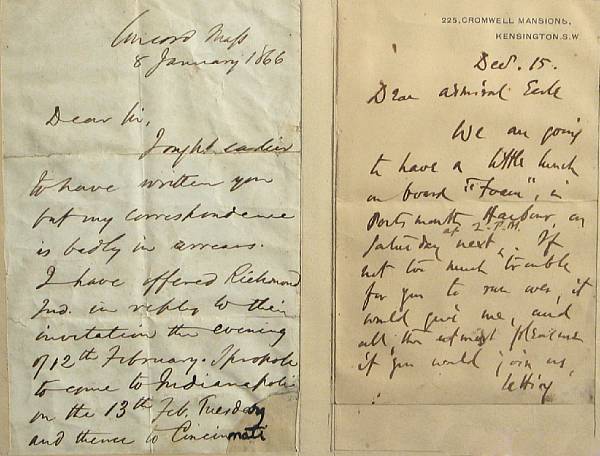 Concord Mass
8 January 1866
Dear Sir,
I ought earlier
to have written you
but my correspondence
is badly in arrears.
I have offered Richmond
Ind. in reply to their
invitation the evening
of 12th February. I propose
to come to Indianapolis
on the 13th Feb. Tuesday
and thence to Cincinnati
225, CROMWELL MANSIONS,
KENSINGTON. S.W.
Dec. 15.
Dear Admiral
We are going
to have a little lunch
on board "Foam", in
Portsmouth Harbour, on
Saturday next at 2. P.M. If
not too much trouble
for you to run over, it
would give me, and
all, the utmost pleasure
if you would join us,